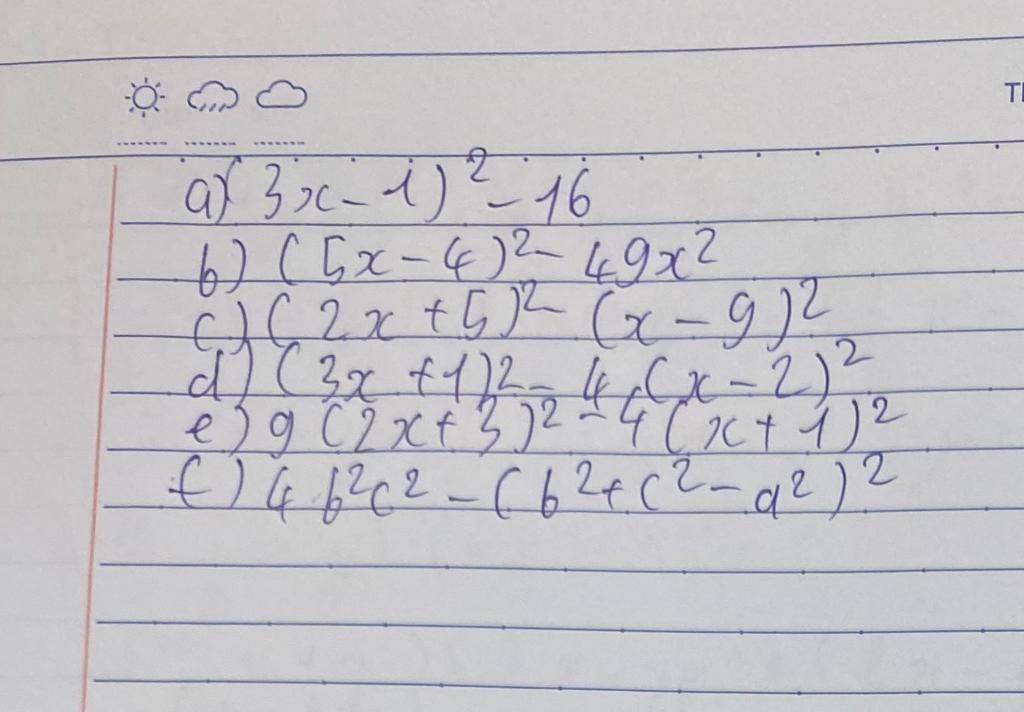 Th
a) (3x - 1)² - 16
b) (5x - 4)² - 49x²
c) (2x + 5)² - (x - 9)²
d) (3x + 1)² - 4(x - 2)²
e) 9(2x + 3)² - 4(x + 1)²
f) 4b²c² - (b² + c² - a²)²